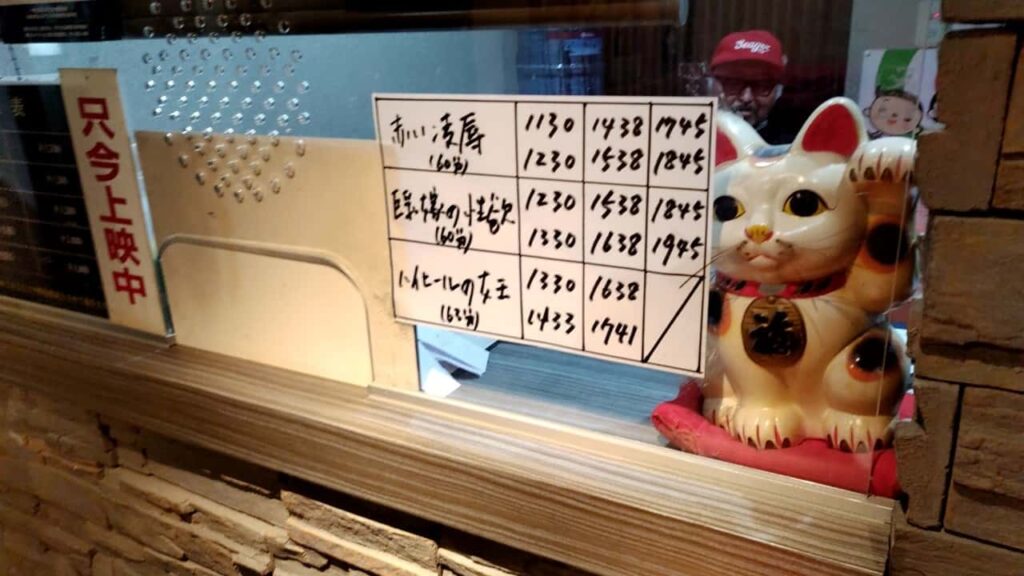 只今上映中
赤い凌辱 1130 1438 1745
(60分) 1230 1538 1845
の性 1230 1538 1845
(60分) 1330 1638 1945
ハイヒールの女王 1330 1638
(63分) 1433 1741
福